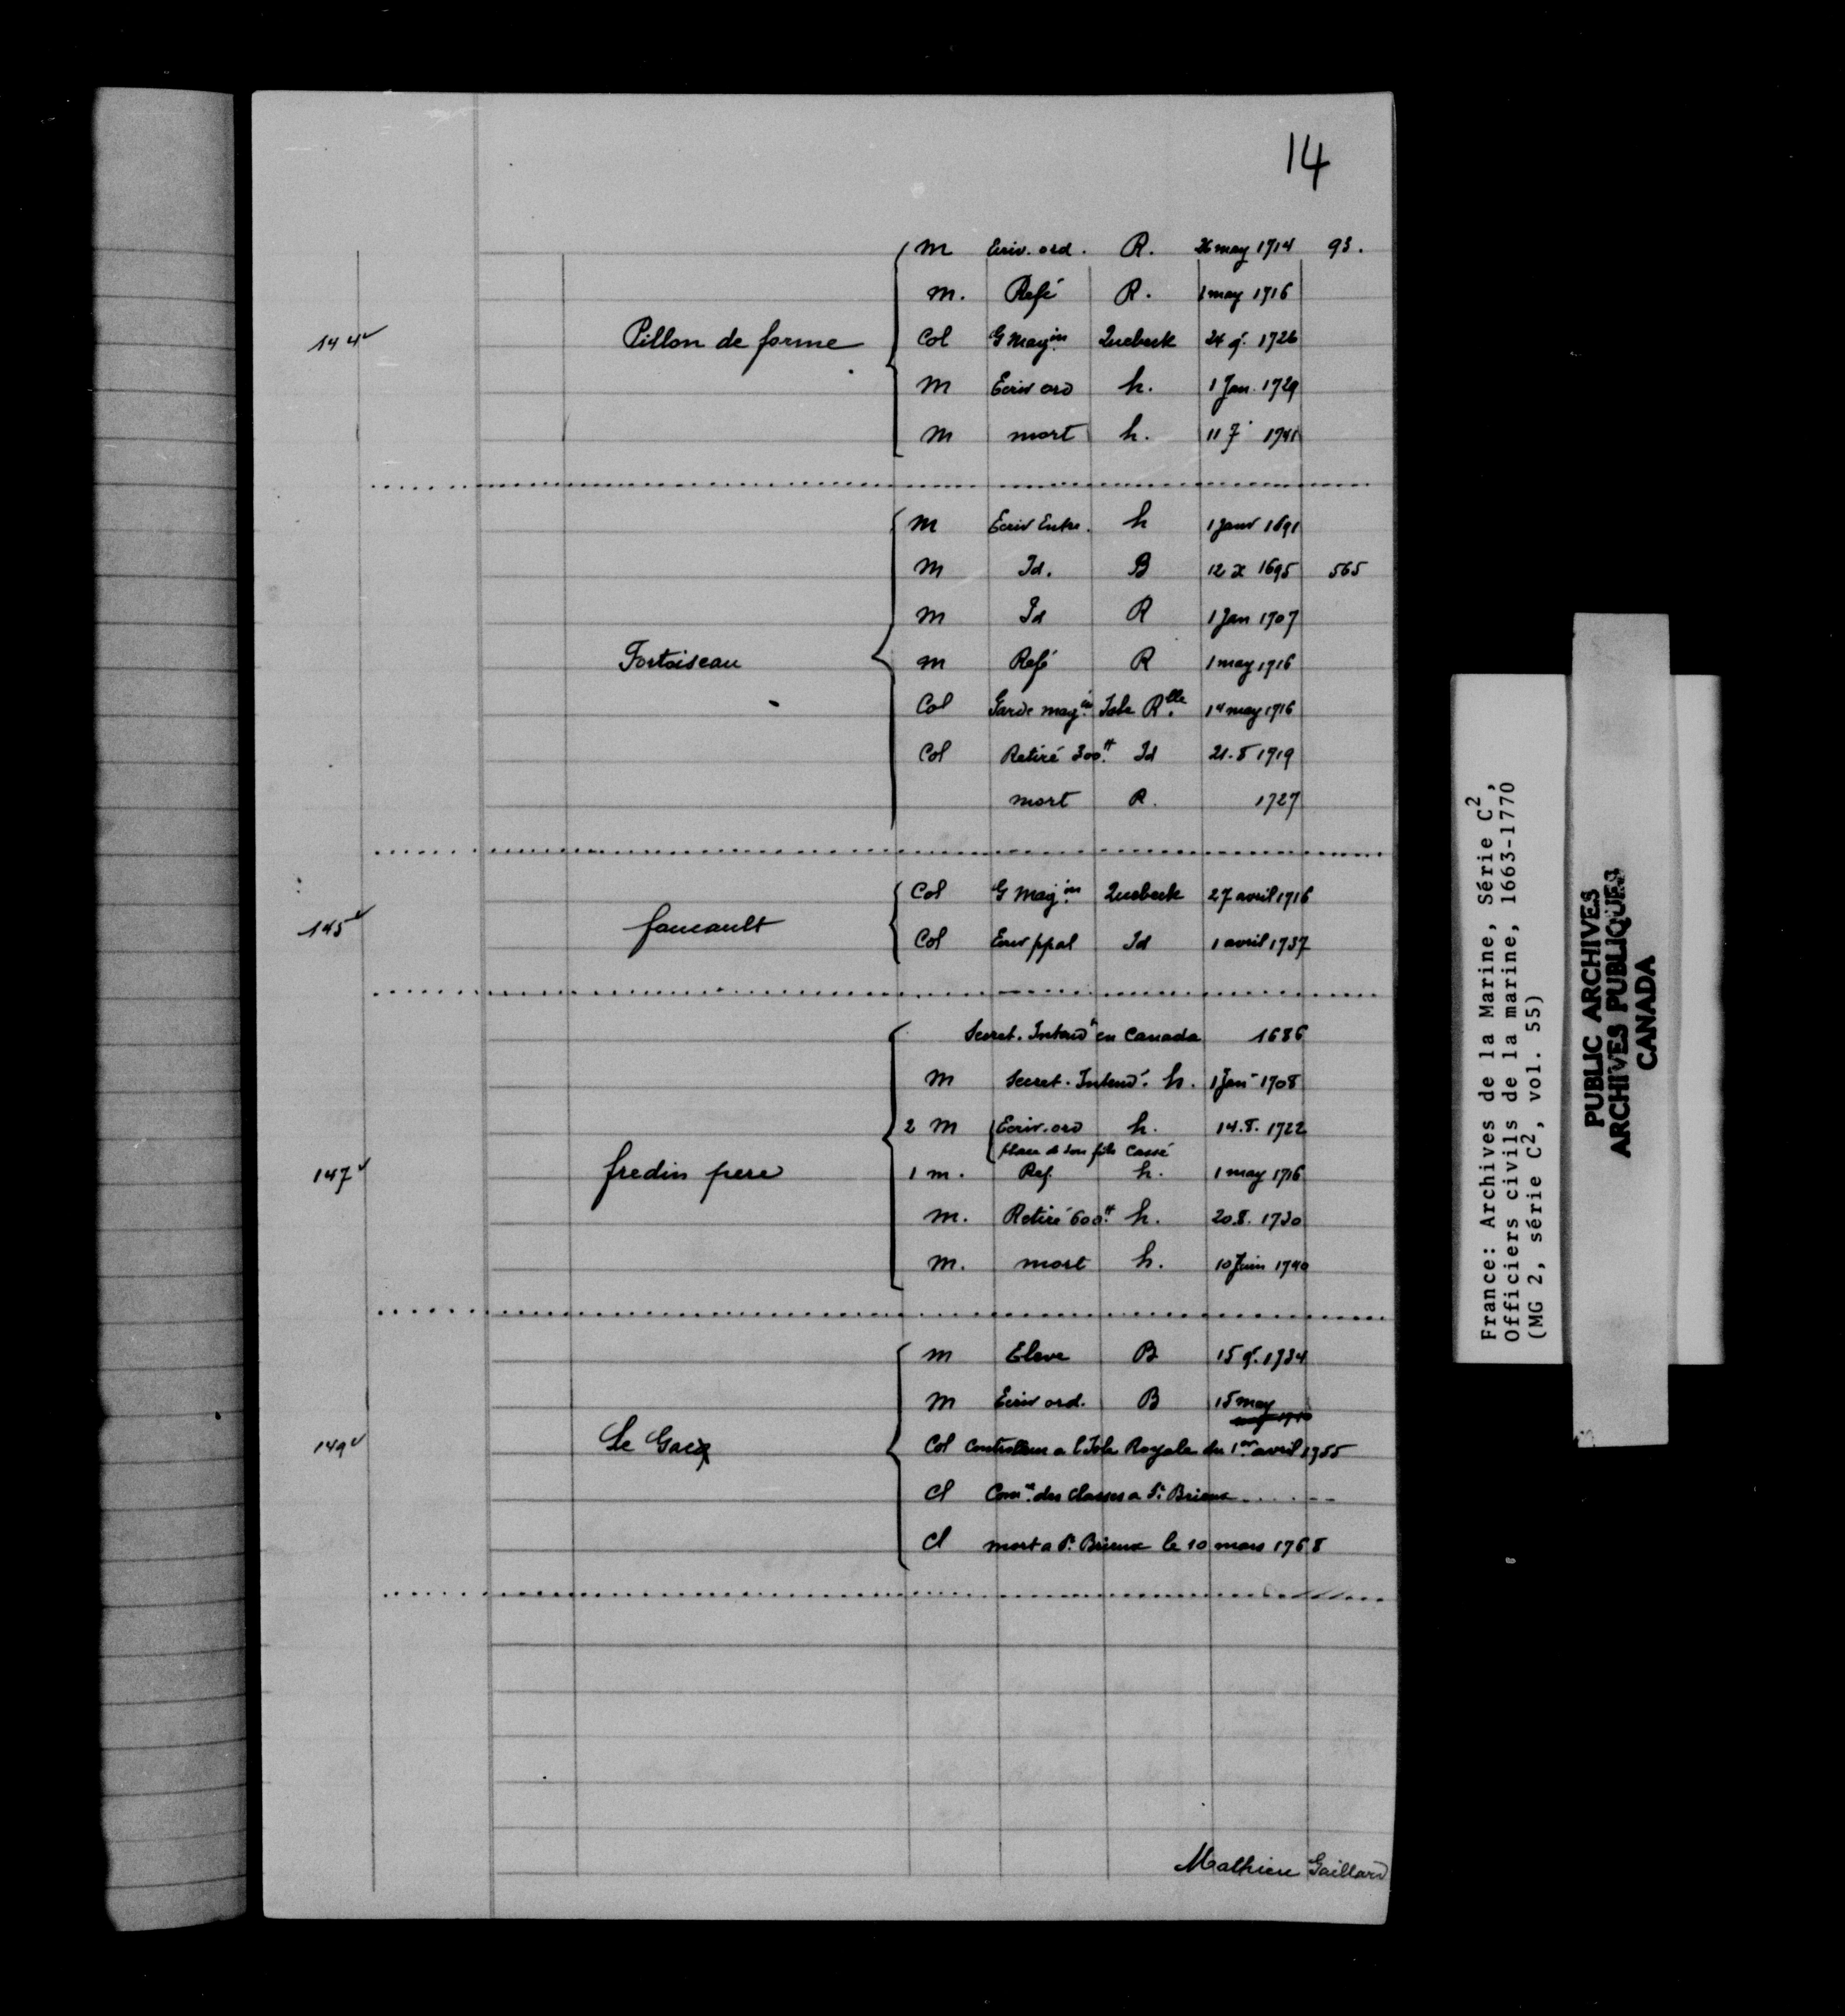 14
m Ecriv. ord. R. 26 may 1714 93.
m. Refé R. 1 may 1716
144v Pillon de forme Col G Magin Quebeck 24 9r 1726
m Ecriv ord h. 1 Jan. 1729
m mort h. 11 7r 1741
m Ecriv Entre. h 1 janv 1691
m Id. B 12 x 1695 565
m Id R 1 Jan 1707
Fortoiseau m Refé R 1 may 1716
Col Garde magin Isle Rlle 14 may 1716
Col Retiré 300# Id 21. 8 1719
mort R. 1727
Col G Magin Quebeck 27 avril 1716
145v foucault Col Ecriv ppal Id 1 avril 1737
Secret. Intendt en Canada 1686
m Secret. Intend. h. 1 Jan 1708
2 m Ecriv. ord h. 14. 8. 1722
place de son fils Cassé
147v fredin pere 1 m. Ref. h. 1 may 1716
m. Retiré 600# h. 20. 8. 1730
m. mort h. 10 Juin 1740
m Eleve B 15 9r. 1734
m Ecriv ord. B 15 may
149v Le Gacq Col Controlleur a l'Isle Royale du 1er avril 1755
Cl Comre des classes a St Brieux . . . . - -
Cl mort a St Brieux le 10 mars 1768
Mathieu Gaillard
France: Archives de la Marine, Série C2,
Officiers civils de la marine, 1663-1770
(MG 2, série C2, vol. 55)
PUBLIC ARCHIVES
ARCHIVES PUBLIQUES
CANADA